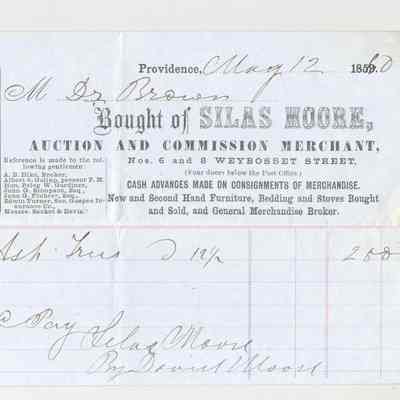 Providence, May 12 1859. 60
M Dr Brown
Bought of SILAS MOORE,
AUCTION AND COMMISSION MERCHANT,
Nos. 6 and 8 WEYBOSSET STREET,
(Four doors below the Post Office.)
CASH ADVANCES MADE ON CONSIGNMENTS OF MERCHANDISE.
New and Second Hand Furniture, Bedding and Stoves Bought
and Sold, and General Merchandise Broker.
Reference is made to the following
gentlemen:
A. B. Dike, Broker,
Hon. Peleg W. Gardiner,
John G. Simpson, Esq.,
Edwin Turner, Sec. Gaspee Insurance
Co.,
12½ 2 00
Pay
Silas Moore
By David Moore